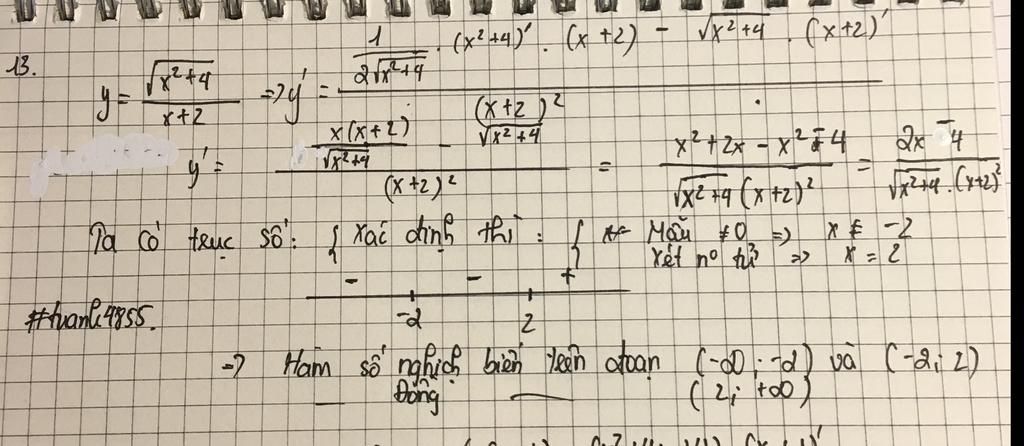 13.
y = √(x²+4) / (x+2) => y' = [1/(2√(x²+4)) . (x²+4)' . (x+2) - √(x²+4) . (x+2)'] / (x+2)²
y' = [x(x+2)/√(x²+4) - √(x²+4)] / (x+2)² = (x²+2x - x² - 4) / (√(x²+4) (x+2)²) = (2x - 4) / (√(x²+4) . (x+2)²)
Ta có trục số: { Xác định thì : { Mẫu ≠ 0 => x ≠ -2
Xét nº tử => x = 2
- - +
-2 2
#tuanh4855.
=> Hàm số nghịch biến trên đoạn (-∞; -2) và (-2; 2)
— Đồng — (2; +∞)